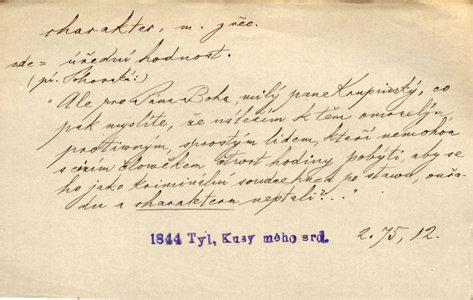 charakter, m. z řec.
zde = úřední hodnost.
(pí. Pohorská:)
"Ale pro Pána Boha, milý pane Krupinský, co
pak myslíte, že náležím k těm omrzelým,
protivným, sprostým lidem, kteří nemohou
s cizím člověkem čtvrt hodiny pobýti, aby se
ho jako kriminální soudce hned po stavu, ouřa-
du a charakteru neptali?..."
1844 Tyl, Kusy mého srd. 2. 75, 12.